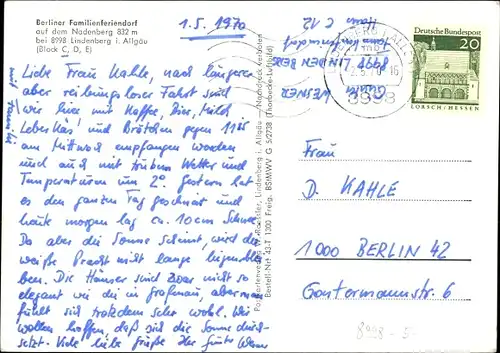 Berliner Familienferiendorf
auf dem Nadenberg 832 m
bei 8998 Lindenberg i. Allgäu
(Block C, D, E)
1.5.1970
Liebe Frau Kahle, nach längerer
aber reibungsloser Fahrt sind
wir hier mit Kaffee, Bier, Milch
Leberkäs und Brötchen gegen 11 45
am Mittwoch empfangen worden
und auch mit trübem Wetter und
Temperaturen um 2°. Gestern hat
es den ganzen Tag geschneit und
heute morgen lag ca. 10 cm Schnee.
Da aber die Sonne scheint, wird die
weiße Pracht nicht lange liegenblei-
ben. Die Häuser sind zwar nicht so
elegant wie die in Grafenau, aber man
fühlt sich trotzdem sehr wohl. Wir
wollen hoffen, daß sich die Sonne durch-
setzt. Viele liebe Grüße Ihr
und Familie
Lindenberg i. Allgäu — Nachdruck verboten
Bestell-Nr. 43-T 1300 Freig. BSMWV G 5/2738 (Thorbecke-Luftbild)
8998 LINDENBERG
Haus C 12
2.5.70-16
8998
DEUTSCHE BUNDESPOST
20
LORSCH/HESSEN
Frau
D. KAHLE
1000 BERLIN 42
Gontermannstr. 6
8998-5